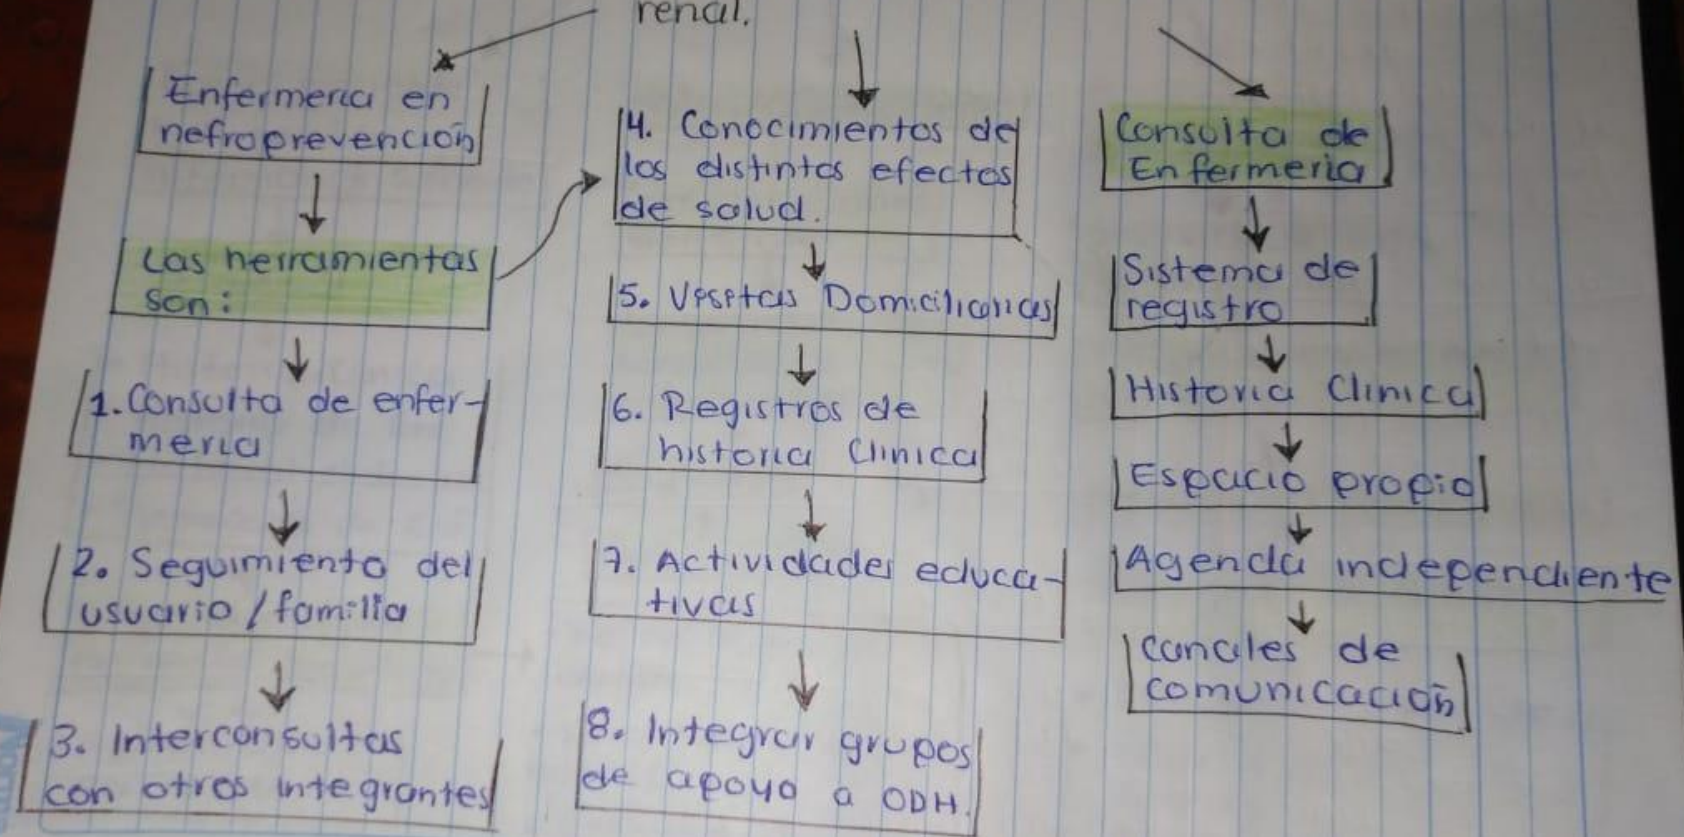 renal.
Enfermeria en
nefroprevención
Las herramientas
son:
1. Consulta de enfer-
meria
2. Seguimiento del
usuario / familia
3. Interconsultas
con otros integrantes
4. Conocimientos de
los distintos efectos
de salud.
5. Visitas Domiciliarias
6. Registros de
historia Clinica
7. Actividades educa-
tivas
8. Integrar grupos
de apoyo a ODH.
Consulta de
Enfermeria
Sistema de
registro
Historia Clinica
Espacio propio
Agenda independiente
canales de
comunicación